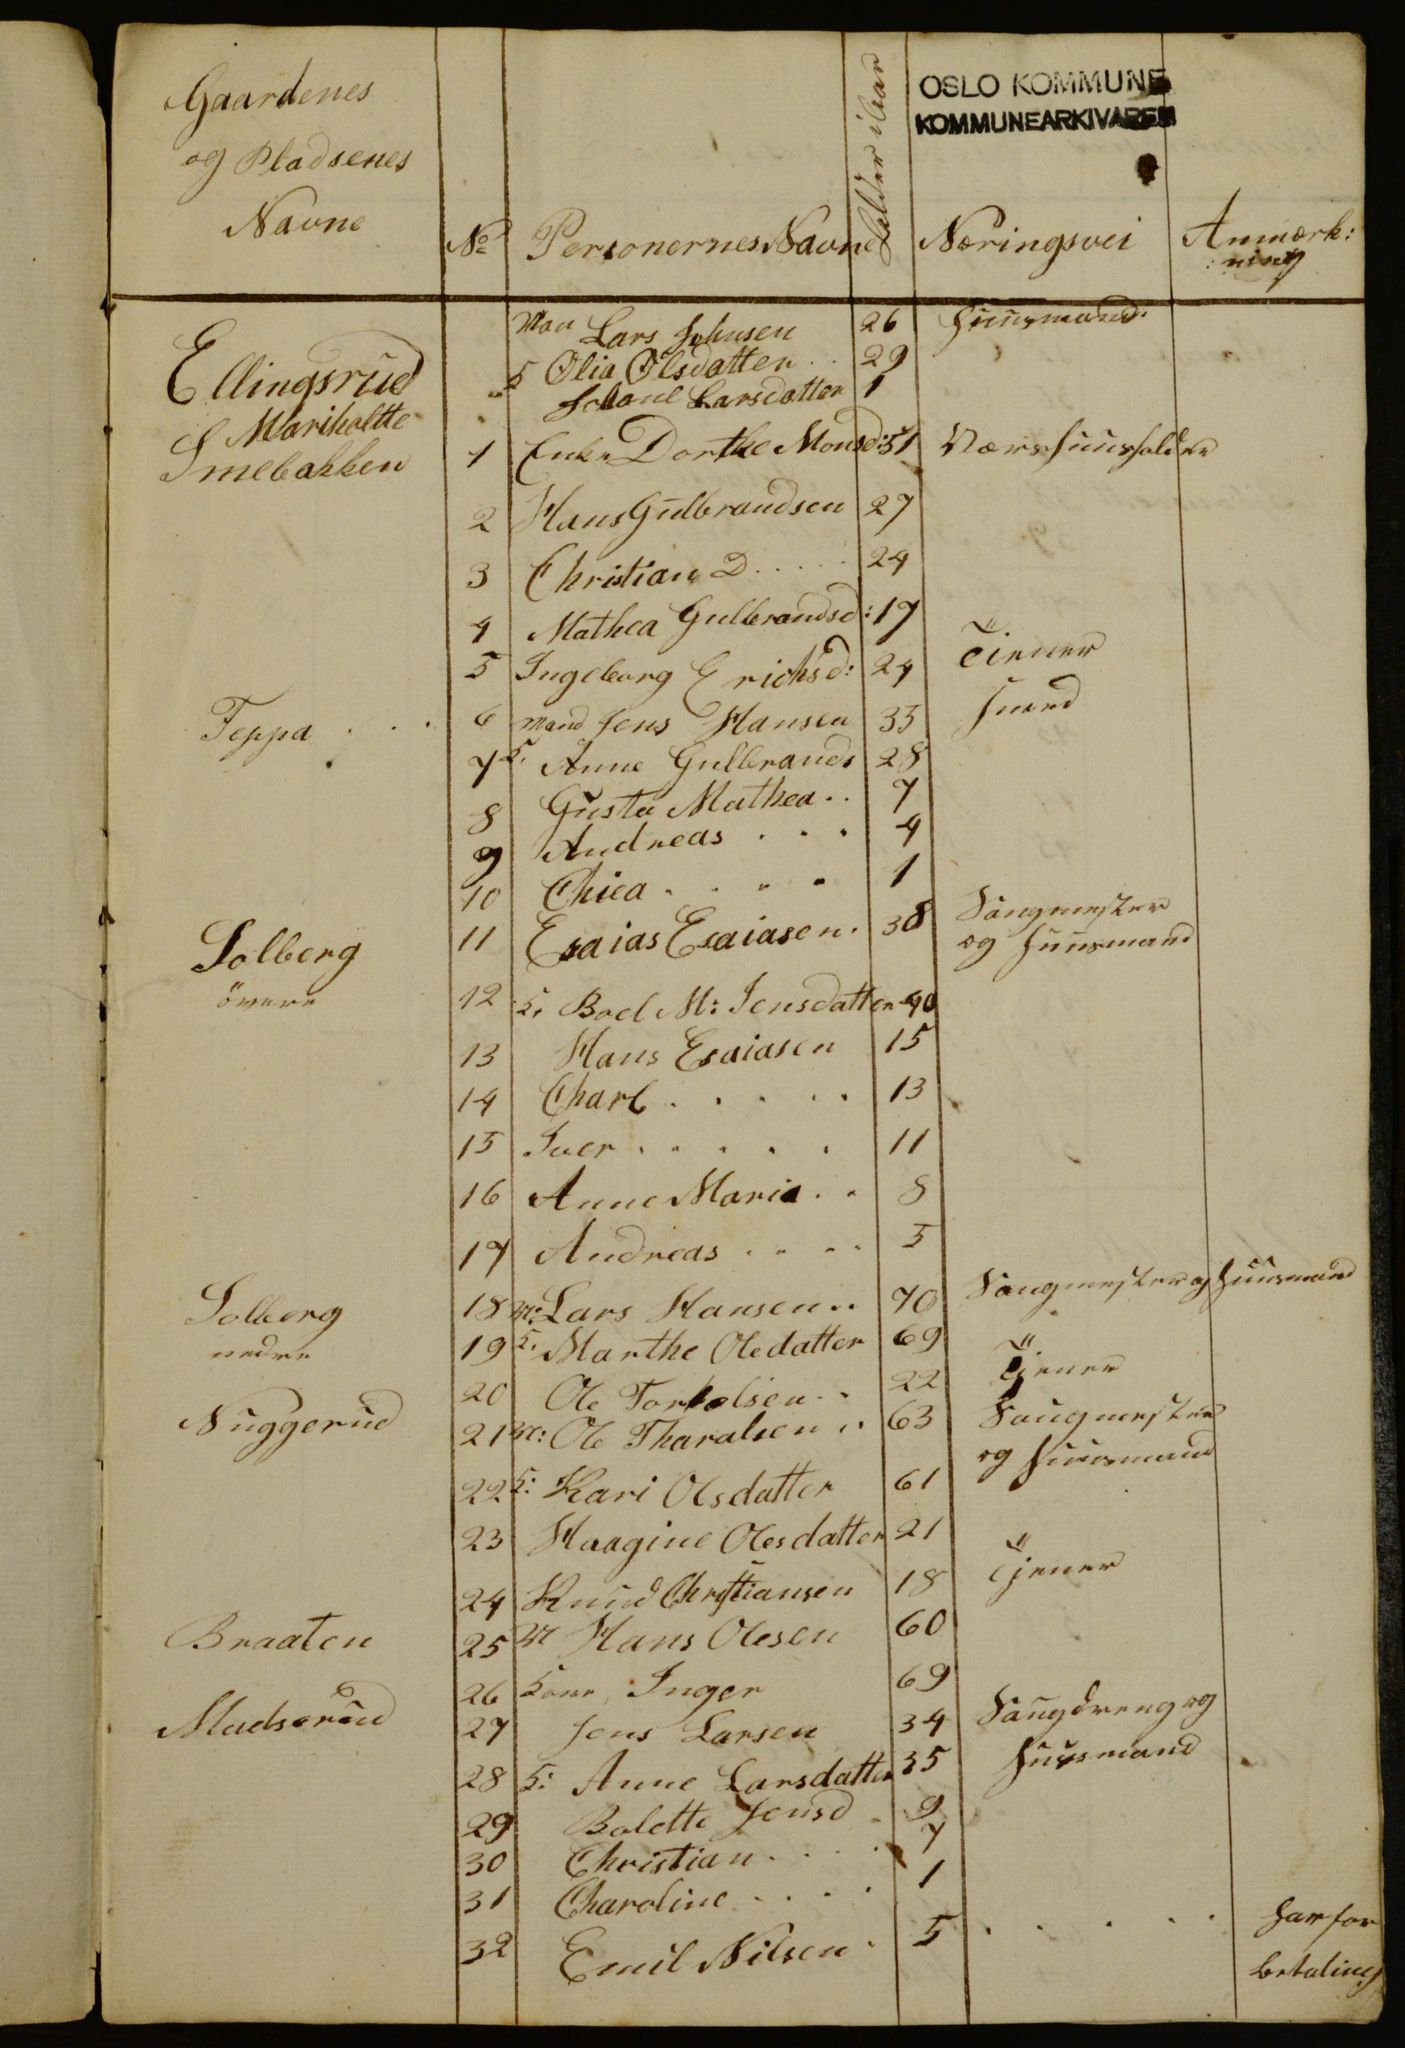 Gaardenes
og Pladsenes
Navne
No
Personernes Navne
Alder i Aar
OSLO KOMMUNE
KOMMUNEARKIVAREN
Næringsvei
Anmærk:
:ning
Ellingsrud
Mariholtte
Man Lars Johnsen 26 Huusmand
K Olia Olsdatter 29
Johane Larsdatter 1
Smebakken 1 Enke Dorthe Monsd: 51
2 Hans Gulbrandsen 27
3 Christian D..... 24
4 Mathea Gulbrandsd: 17
5 Ingeborg Erichsd: 24 Tiener
Teppa . . . 6 Mand Jens Hansen 33 Smed
7 K. Anne Gulbrands 28
8 Gusta Mathea.. 7
9 Andreas . . . 4
10 . . . . 1
Solberg 11 Esaias Esaiasen. 38 Saugmester
og Huusmand
övere 12 K. Boel M: Jensdatter 40
13 Hans Esaiasen 15
14 Charl . . . . . 13
15 Iver . . . . . 11
16 Anne Maria . . 8
17 Andreas . . . . 5
Solberg 18 M: Lars Hansen .. 70 Saugmester og Huusmand
nedre 19 K. Marthe Oledatter 69
20 Ole Torkelsen . . 22 Tjener
Nuggerud 21 M: Ole Tharalsen .. 63 Saugmester
og Huusmand
22 K: Kari Olsdatter 61
23 Haagine Olesdatter 21
24 Knud Christiansen 18 Tjener
Braaten 25 M Hans Olesen 60
26 Kone Inger 69
Madserud 27 Jens Larsen 34 Saugdreng og
Huusmand
28 K: Anne Larsdatter 35
29 Bolette Jensd 9
30 Christian . . . . 7
31 Charoline . . . . 1
32 Emil Nilsen . 5 . . . . . her for
betaling